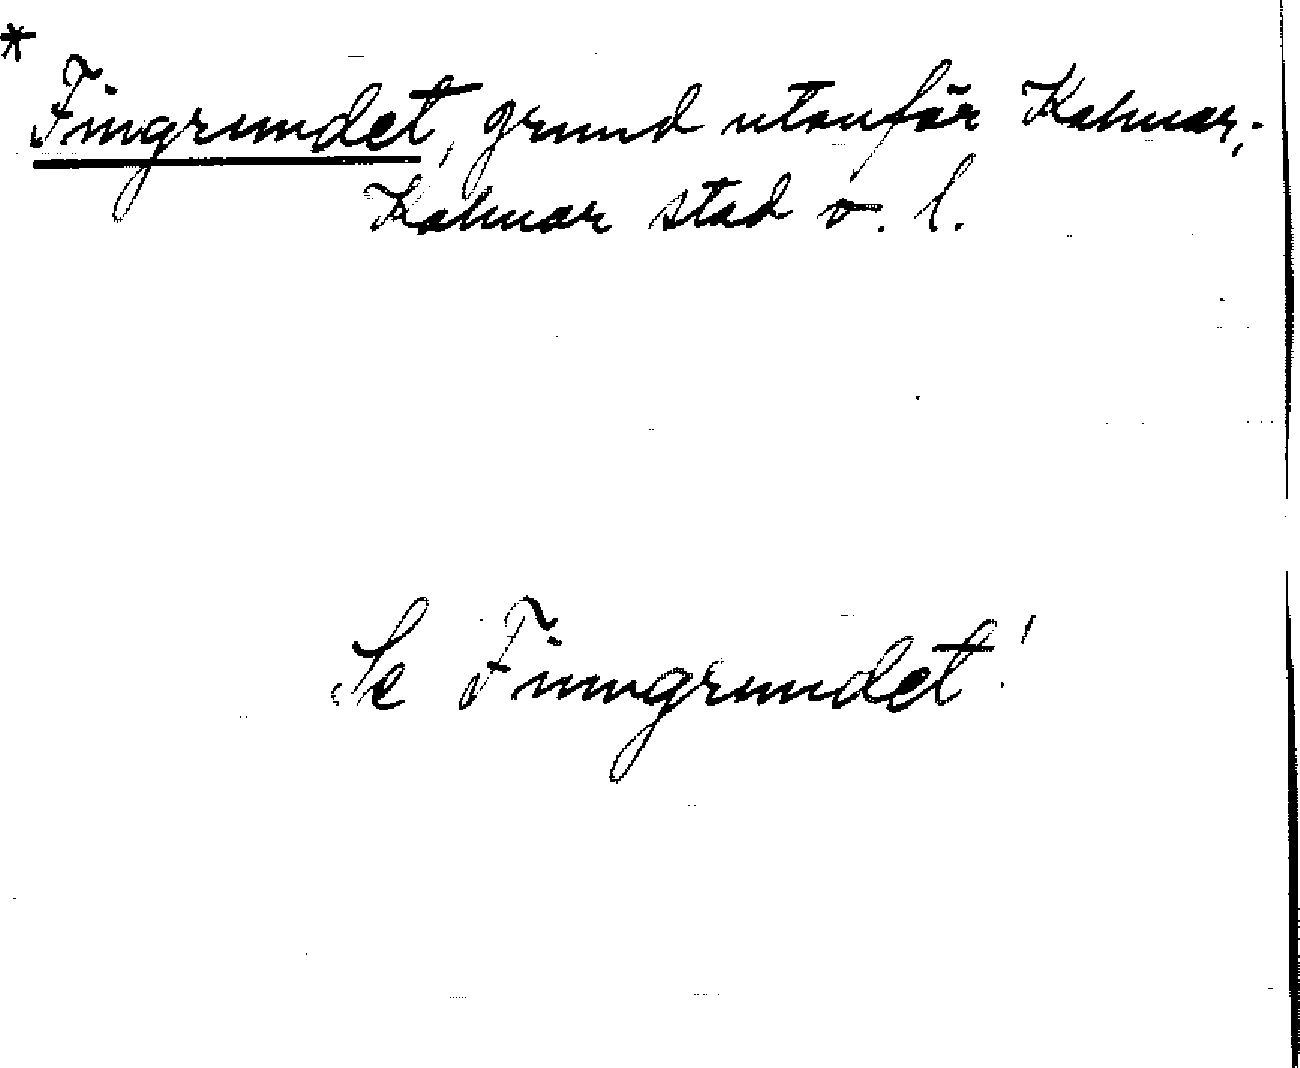 * Fingrundet, grund utanför Kalmar;
Kalmar stad o. l.
Se Finngrundet!